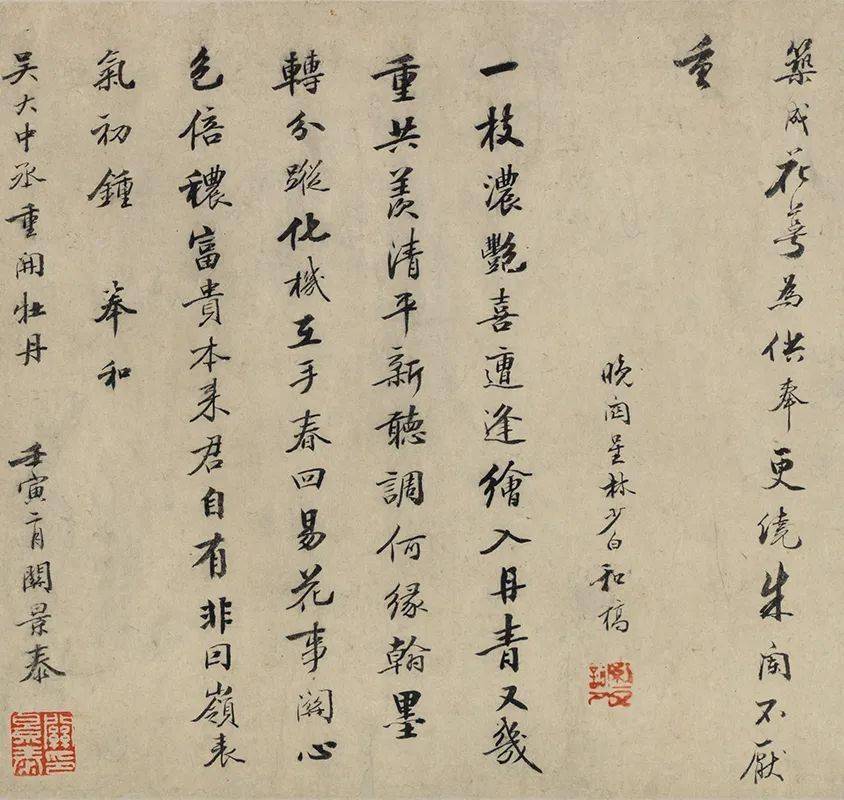 築成花萼為供奉更繞朱闌不厭
重
晚閣呈林少白和稿
一枝濃艷喜遭逢繪入丹青又幾
重共羨清平新聽調何緣翰墨
轉分蹤化機在手春回易花事關心
色倍穠富貴本來君自有非因嶺表
氣初鍾 奉和
吳大中丞重開牡丹 壬寅二月關景泰
關景泰印